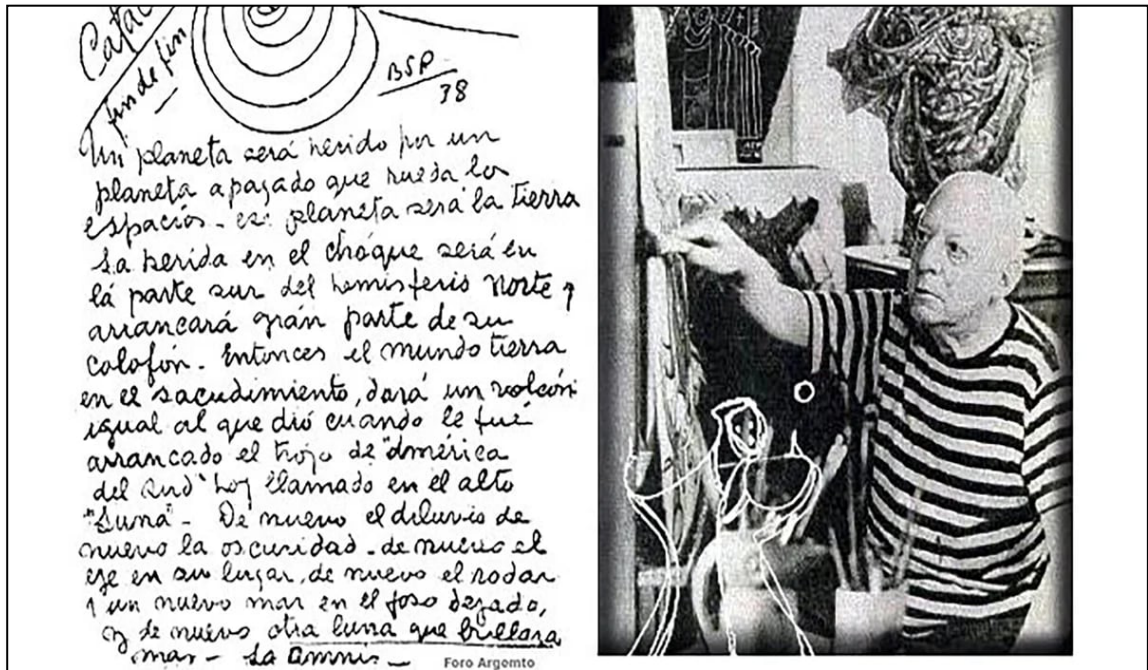 fin de fin
BSP
38
Un planeta será herido por un
planeta apagado que rueda los
espacios - ese planeta será la tierra
La herida en el choque será en
la parte sur del hemisferio norte y
arrancará gran parte de su
colofón. Entonces el mundo tierra
en el sacudimiento, dará un volcón
igual al que dió cuando le fué
arrancado el trozo de "América
del sud" hoy llamado en el alto
"Luna" - De nuevo el diluvio de
nuevo la oscuridad - de nuevo el
eje en su lugar, de nuevo el rodar
y un nuevo mar en el foso dejado,
y de nuevo otra luna que brillara
mas - La
Foro Argemto